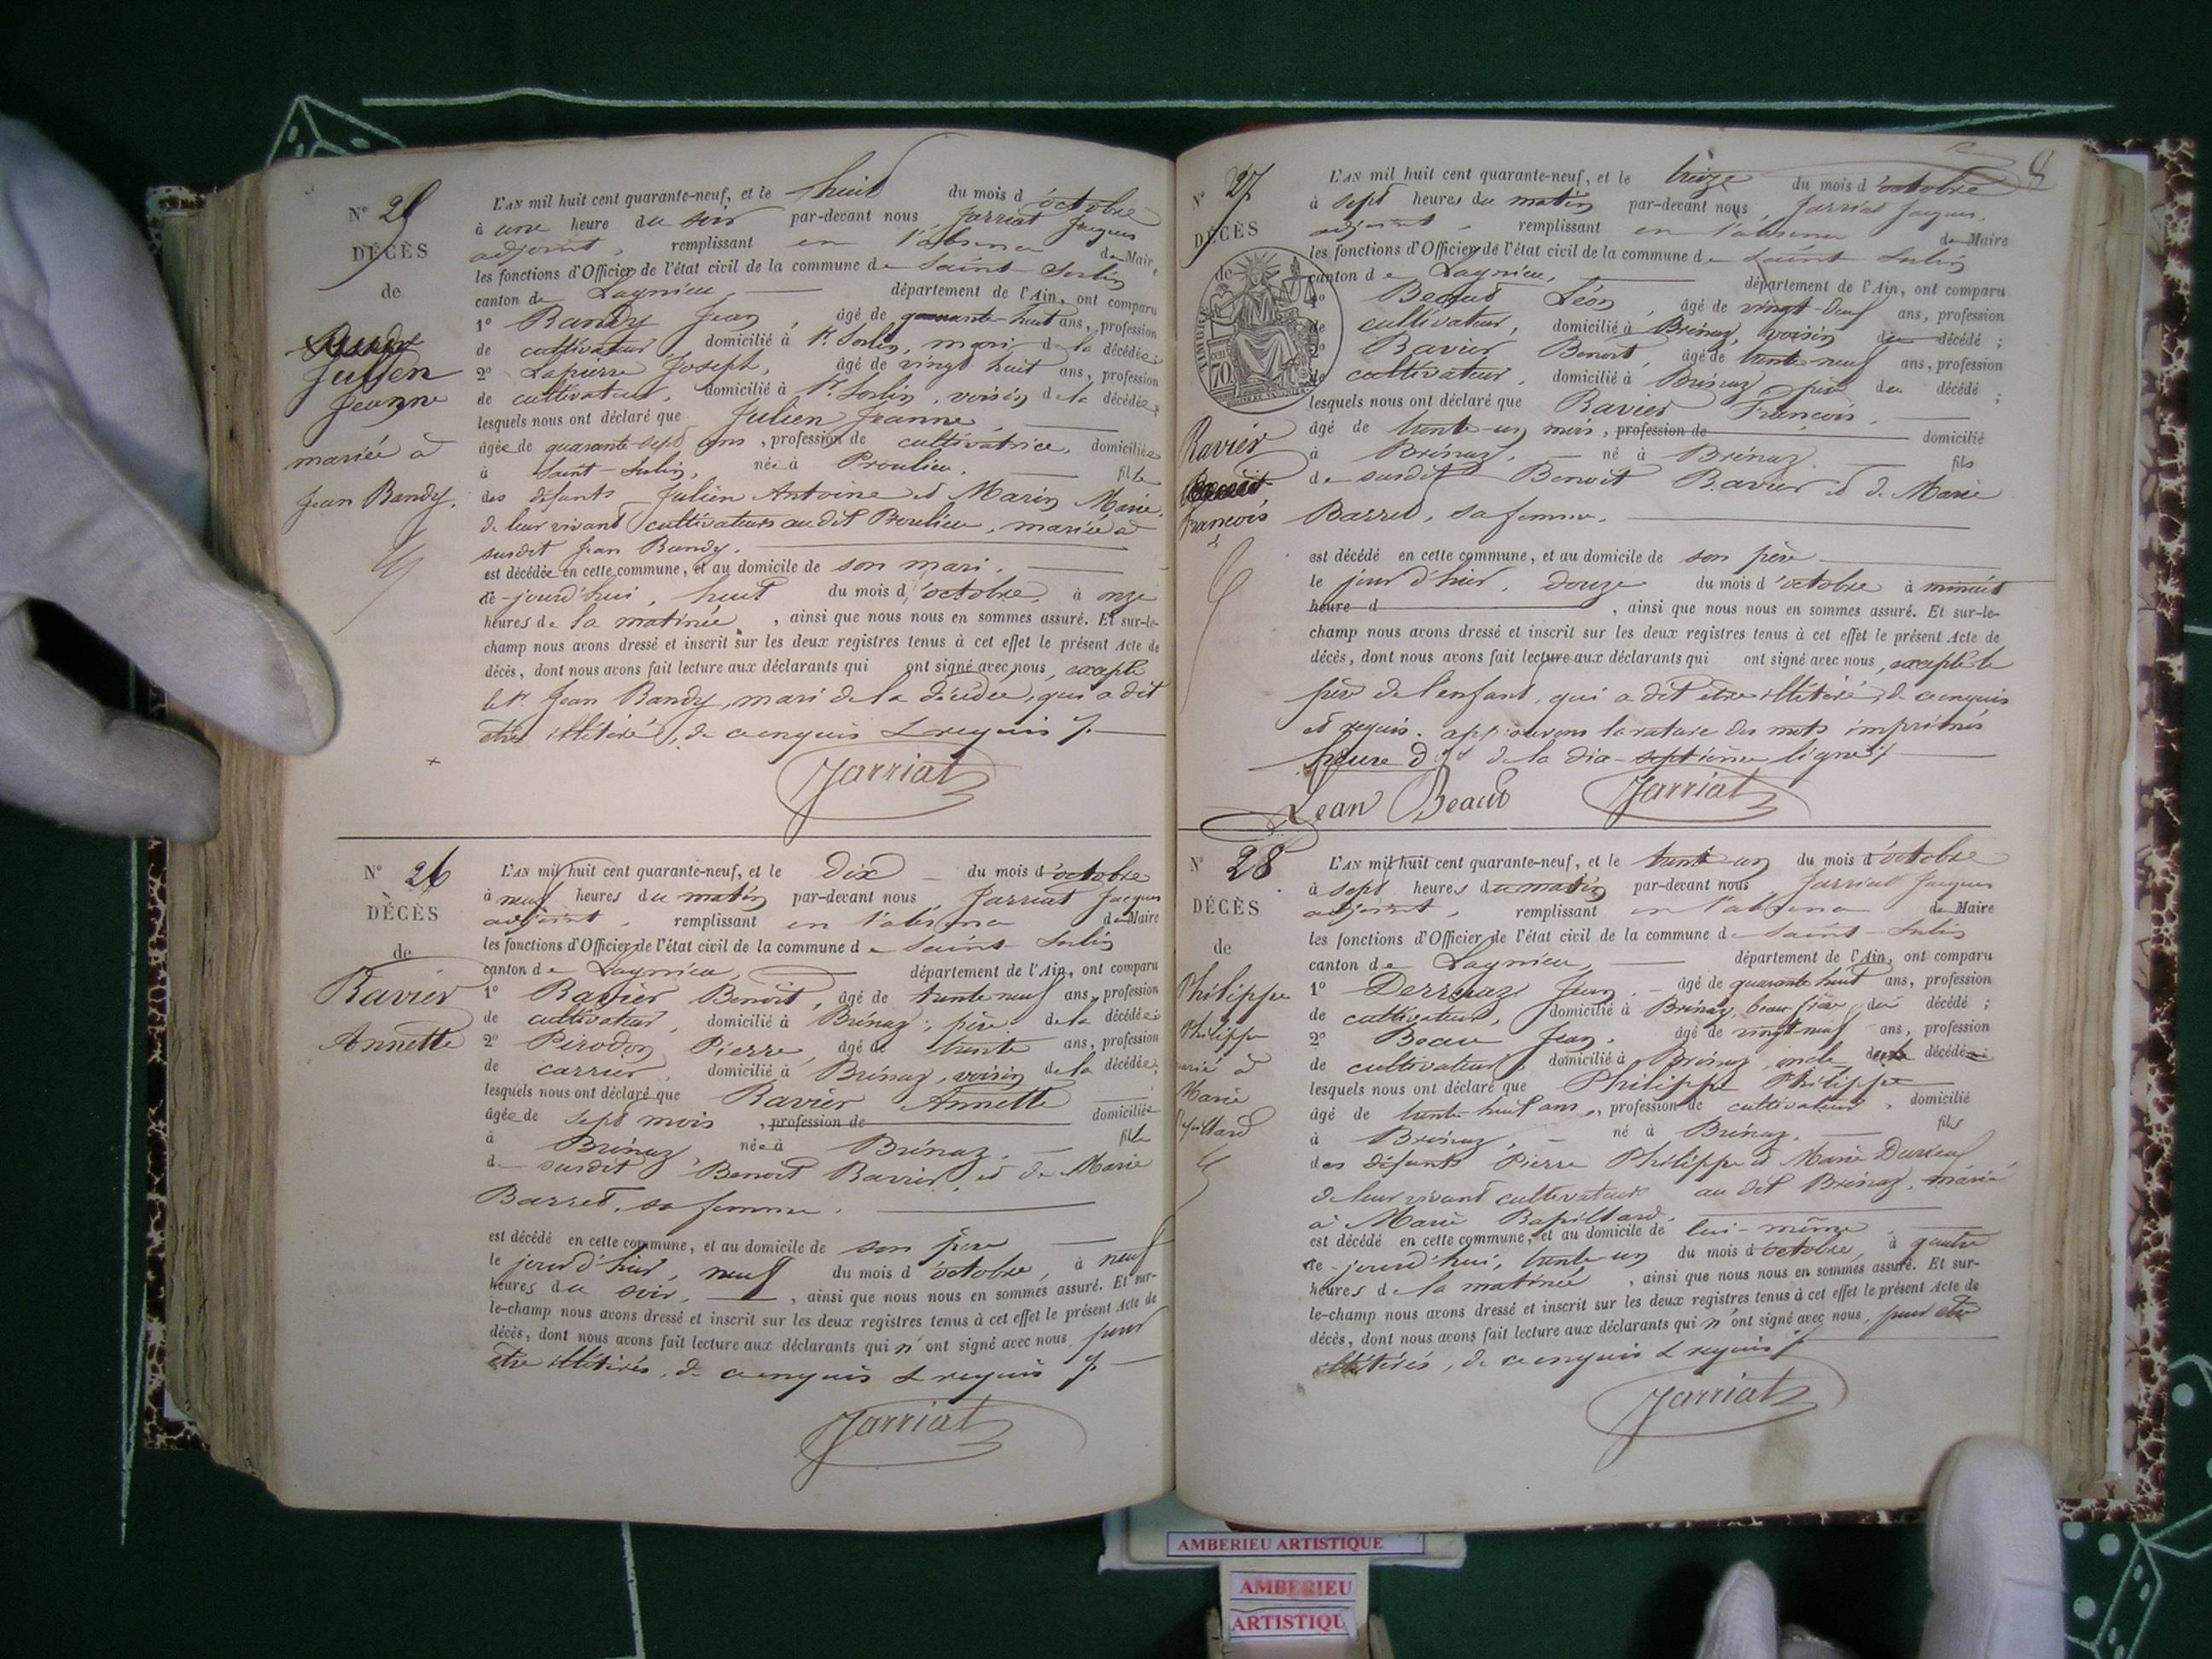 N° 25
DÉCÈS
de
Julien
Jeanne
mariée à
Jean Bandy.
L'AN mil huit cent quarante-neuf, et le huit du mois d'octobre
à une heure du soir par-devant nous Jarriat Jacques
adjoint, remplissant en l'absence du Maire
les fonctions d'Officier de l'état civil de la commune de Saint-Sorlin
canton de Lagnieu, département de l'Ain, ont comparu
1° Bandy Jean, âgé de quarante-huit ans, profession
de cultivateur, domicilié à St. Sorlin, mari de la décédée;
2° Lapierre Joseph, âgé de vingt huit ans, profession
de cultivateur, domicilié à St. Sorlin, voisin de la décédée;
lesquels nous ont déclaré que Julien Jeanne
âgée de quarante-sept ans, profession de cultivatrice, domiciliée
à Saint-Sorlin, née à Proulieu. fille
des défunts Julien Antoine et Marin Marie,
de leur vivant cultivateurs au dit Proulieu, mariée à
susdit Jean Bandy.
est décédée en cette commune, et au domicile de son mari.
ce-jourd'hui, huit du mois d'octobre, à onze
heures de la matinée, ainsi que nous nous en sommes assuré. Et sur-le-
champ nous avons dressé et inscrit sur les deux registres tenus à cet effet le présent Acte de
décès, dont nous avons fait lecture aux déclarants qui ont signé avec nous, excepté
le St. Jean Bandy, mari de la décédée, qui a dit
être illitéré, de ce enquis & requis
Jarriat
N° 26
DÉCÈS
de
Ravier
Annette
L'AN mil huit cent quarante-neuf, et le dix du mois d'octobre
à neuf heures du matin par-devant nous, Jarriat Jacques
adjoint, remplissant en l'absence du Maire
les fonctions d'Officier de l'état civil de la commune de Saint-Sorlin
canton de Lagnieu, département de l'Ain, ont comparu
1° Ravier Benoît, âgé de trente-neuf ans, profession
de cultivateur, domicilié à Brénaz, père de la décédée;
2° Pirodon Pierre, âgé de trente ans, profession
de carrier domicilié à Brénaz, voisin de la décédée;
lesquels nous ont déclaré que Ravier Annette
âgée de sept mois, profession de domiciliée
à Brénaz, née à Brénaz. fille
de susdit Benoît Ravier, et de Marie
Barret, sa femme.
est décédé en cette commune, et au domicile de son père
le jour d'hier, neuf du mois d'octobre, à neuf
heures du soir, ainsi que nous nous en sommes assuré. Et sur-
le-champ nous avons dressé et inscrit sur les deux registres tenus à cet effet le présent Acte de
décès, dont nous avons fait lecture aux déclarants qui n'ont signé avec nous pour
être illitérés, de ce enquis & requis
Jarriat
8
N° 27
DÉCÈS
de
TIMBRE
70
Ravier
François
L'AN mil huit cent quarante-neuf, et le treize du mois d'octobre
à sept heures du matin par-devant nous, Jarriat Jacques,
adjoint, remplissant en l'absence du Maire
les fonctions d'Officier de l'état civil de la commune de Saint-Sorlin
canton de Lagnieu, département de l'Ain, ont comparu
1° Beaud Léon, âgé de vingt-neuf ans, profession
de cultivateur, domicilié à Brénaz, voisin du décédé;
2° Ravier Benoît, âgé de trente-neuf ans, profession
de cultivateur, domicilié à Brénaz père du décédé;
lesquels nous ont déclaré que Ravier François,
âgé de trente-un mois, profession de domicilié
à Brénaz, né à Brénaz. fils
de susdit Benoît Ravier et de Marie
Barret, sa femme.
est décédé en cette commune, et au domicile de son père
le jour d'hier, douze du mois d'octobre à minuit
heure d, ainsi que nous nous en sommes assuré. Et sur-le-
champ nous avons dressé et inscrit sur les deux registres tenus à cet effet le présent Acte de
décès, dont nous avons fait lecture aux déclarants qui ont signé avec nous, excepté le
père de l'enfant, qui a dit être illitéré, de ce enquis
et requis. approuvons la rature des mots imprimés
heure d de la dix-septième ligne
Lean Beaud Jarriat
N° 28
DÉCÈS
de
Philippe
Philippe
marié à
Marie
Bapillard
L'AN mil huit cent quarante-neuf, et le trente-un du mois d'octobre
à sept heures du matin par-devant nous, Jarriat Jacques
adjoint, remplissant en l'absence du Maire
les fonctions d'Officier de l'état civil de la commune de Saint-Sorlin
canton de Lagnieu, département de l'Ain, ont comparu
1° Derrnaz Jean, âgé de quarante huit ans, profession
de cultivateur, domicilié à Brénaz, beau frère du décédé;
2° Beau Jean, âgé de vingt-neuf ans, profession
de cultivateur, domicilié à Brénaz, oncle du décédé
lesquels nous ont déclaré que Philippe Philippe
âgé de trente-huit ans, profession de cultivateur, domicilié
à Brénaz, né à Brénaz. fils
des défunts Pierre Philippe et Marie
de leur vivant cultivateurs au dit Brénaz, marié
à Marie Bapillard.
est décédé en cette commune, et au domicile de lui-même
ce-jourd'hui, trente-un du mois d'octobre, à quatre
heures de la matinée, ainsi que nous nous en sommes assuré. Et sur-
le-champ nous avons dressé et inscrit sur les deux registres tenus à cet effet le présent Acte de
décès, dont nous avons fait lecture aux déclarants qui n'ont signé avec nous, pour être
illitérés, de ce enquis & requis
Jarriat
AMBERIEU ARTISTIQUE
AMBERIEU
ARTISTIQU